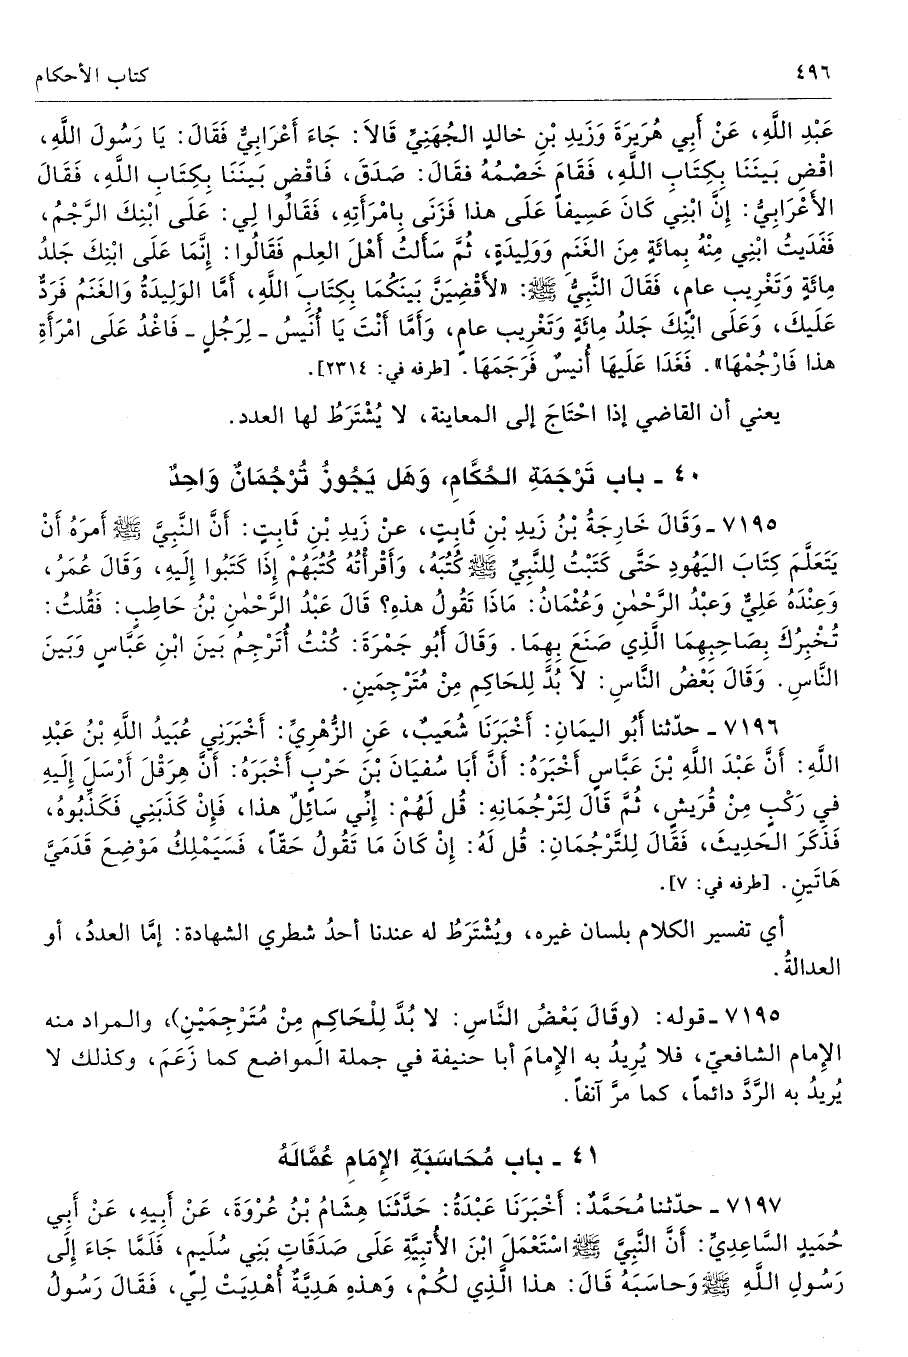 ٤٩٦ كتاب الأحكام
عَبْدِ اللَّهِ، عَنْ أَبِي هُرَيرَةَ وَزَيدِ بْنِ خالِدٍ الجُهَنِيِّ قَالاَ: جَاءَ أَعْرَابِيٌّ فَقَالَ: يَا رَسُولَ اللَّهِ،
اقْضِ بَينَنَا بِكِتَابِ اللَّهِ، فَقَامَ خَصْمُهُ فقَالَ: صَدَقَ، فَاقْضِ بَينَنَا بِكِتَابِ اللَّهِ، فَقَالَ
الأَعْرَابِيُّ: إِنَّ ابْنِي كَانَ عَسِيفاً عَلَى هذا فَزَنَى بِامْرَأَتِهِ، فَقَالُوا لِي: عَلَى ابْنِكَ الرَّجْمُ،
فَفَدَيتُ ابْنِي مِنْهُ بِمائَةٍ مِنَ الغَنَمِ وَوَلِيدَةٍ، ثُمَّ سَأَلتُ أَهْلَ العِلمِ فَقَالُوا: إِنَّمَا عَلَى ابْنِكَ جَلدُ
مِائَةٍ وَتَغْرِيب عامٍ، فَقَالَ النَّبِيُّ ﷺ: «لأَقْضِيَنَّ بَينَكُمَا بِكِتَابِ اللَّهِ، أَمَّا الوَلِيدَةُ وَالغَنَمُ فَرَدٌّ
عَلَيكَ، وَعَلَى ابْنِكَ جَلدُ مِائَةٍ وَتَغْرِيب عامٍ، وَأَمَّا أَنْتَ يَا أُنَيسُ ـ لِرَجُلٍ ـ فَاغْدُ عَلَى امْرَأَةِ
هذا فَارْجُمْهَا». فَغَدَا عَلَيهَا أُنَيسٌ فَرَجَمَهَا. [طرفه في: ٢٣١٤].
يعني أن القاضي إذا احْتَاجَ إلى المعاينة، لا يُشْتَرَطُ لها العدد.
٤٠ ـ باب تَرْجَمَةِ الحُكَّامِ، وَهَل يَجُوزُ تُرْجُمَانٌ وَاحِدٌ
٧١٩٥ ـ وَقَالَ خَارِجَةُ بْنُ زَيدِ بْنِ ثَابِتٍ، عنْ زَيدِ بْنِ ثَابِتٍ: أَنَّ النَّبِيَّ ﷺ أَمرَهُ أَنْ
يَتَعَلَّمَ كِتَابَ اليَهُودِ حَتَّى كَتَبْتُ لِلنَّبِيِّ ﷺ كُتُبَهُ، وَأَقْرَأْتُهُ كُتُبَهُمْ إِذَا كَتَبُوا إِلَيهِ، وَقَالَ عُمَرُ،
وَعِنْدَهُ عَلِيٌّ وَعَبْدُ الرَّحْمٰنِ وَعُثْمَانُ: مَاذَا تَقُولُ هذهِ؟ قَالَ عَبْدُ الرَّحْمٰنِ بْنُ حَاطِبٍ: فَقُلتُ:
تُخْبِرُكَ بِصَاحِبِهِمَا الَّذِي صَنَعَ بِهِمَا. وَقَالَ أَبُو جَمْرَةَ: كُنْتُ أُتَرْجِمُ بَينَ ابْنِ عَبَّاسٍ وَبَينَ
النَّاسِ. وَقَالَ بَعْضُ النَّاسِ: لاَ بُدَّ لِلحَاكِمِ مِنْ مُتَرْجِمَينِ.
٧١٩٦ ـ حدّثنا أَبُو اليَمَانِ: أَخْبَرَنَا شُعَيبٌ، عَنِ الزُّهْرِيِّ: أَخْبَرَنِي عُبَيدُ اللَّهِ بْنُ عَبْدِ
اللَّهِ: أَنَّ عَبْدَ اللَّهِ بْنَ عَبَّاسٍ أَخْبَرَهُ: أَنَّ أَبَا سُفيَانَ بْنَ حَرْبٍ أَخْبَرَهُ: أَنَّ هِرَقْلَ أَرْسَلَ إِلَيهِ
في رَكْبٍ مِنْ قُرَيشٍ، ثُمَّ قَالَ لِتَرْجُمَانِهِ: قُل لَهُمْ: إِنِّي سَائِلٌ هذا، فَإِنْ كَذَبَنِي فَكَذِّبُوهُ،
فَذَكَرَ الحَدِيثَ، فَقَالَ لِلتَّرْجُمَانِ: قُل لَهُ: إِنْ كَانَ مَا تَقُولُ حَقّاً، فَسَيَمْلِكُ مَوْضِعَ قَدَمَيَّ
هَاتَينِ. [طرفه في: ٧].
أي تفسير الكلام بلسان غيره، ويُشْتَرَطُ له عندنا أحدُ شطري الشهادة: إمَّا العددُ، أو
العدالةُ.
٧١٩٥ ـ قوله: (وقَالَ بَعْضُ النَّاسِ: لا بُدَّ لِلْحَاكِمِ مِنْ مُتَرْجِمَيْنِ)، والمراد منه
الإِمام الشافعيّ، فلا يُرِيدُ به الإِمامَ أبا حنيفة في جملة المواضع كما زَعَمَ، وكذلك لا
يُرِيدُ به الرَّدَّ دائماً، كما مرَّ آنفاً.
٤١ ـ باب مُحَاسَبَةِ الإِمَامِ عُمَّالَهُ
٧١٩٧ ـ حدّثنا مُحَمَّدٌ: أَخْبَرَنَا عَبْدَةُ: حَدَّثَنَا هِشَامُ بْنُ عُرْوَةَ، عَنْ أَبِيهِ، عَنْ أَبِي
حُمَيدٍ السَّاعِدِيِّ: أَنَّ النَّبِيَّ ﷺ اسْتَعْمَلَ ابْنَ الأُتَبِيَّةِ عَلَى صَدَقَاتِ بَنِي سُلَيمٍ، فَلَمَّا جَاءَ إِلَى
رَسُولِ اللَّهِ ﷺ وَحاسَبَهُ قَالَ: هذا الَّذِي لكُمْ، وَهذهِ هَدِيَّةٌ أُهْدِيَتْ لِي، فَقَالَ رَسُولُ